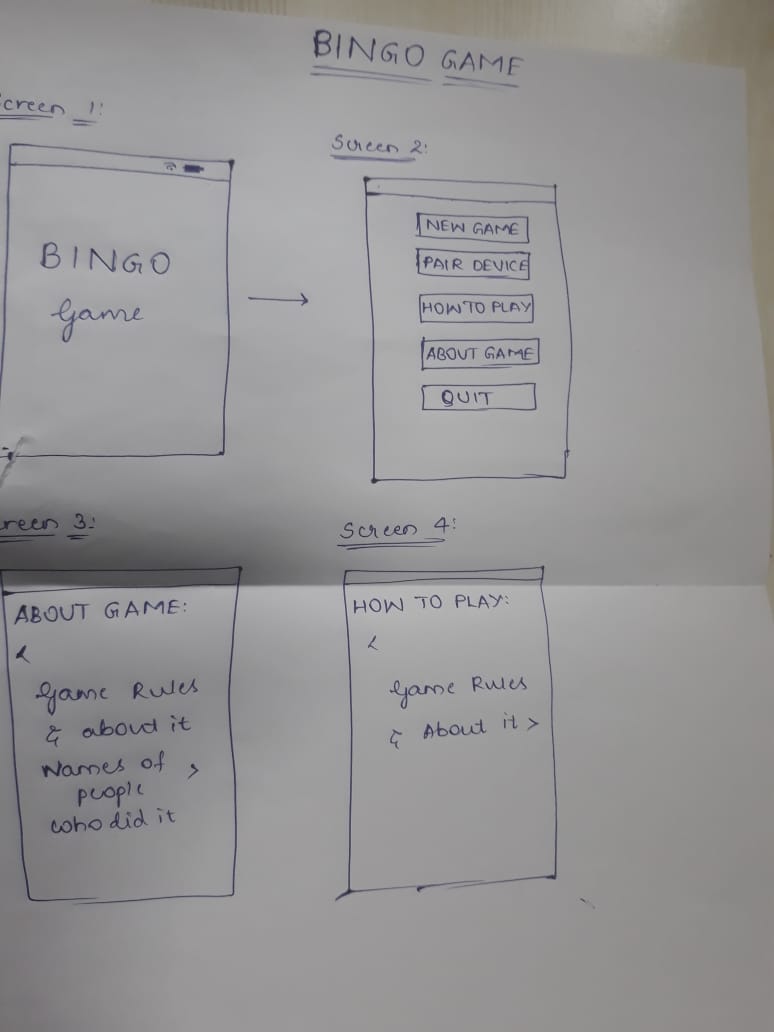 BINGO GAME
creen 1:
Screen 2:
BINGO
Game
NEW GAME
PAIR DEVICE
HOW TO PLAY
ABOUT GAME
QUIT
reen 3:
Screen 4:
ABOUT GAME:
<
Game Rules
& about it
Names of >
people
who did it
HOW TO PLAY:
<
Game Rules
& About it >